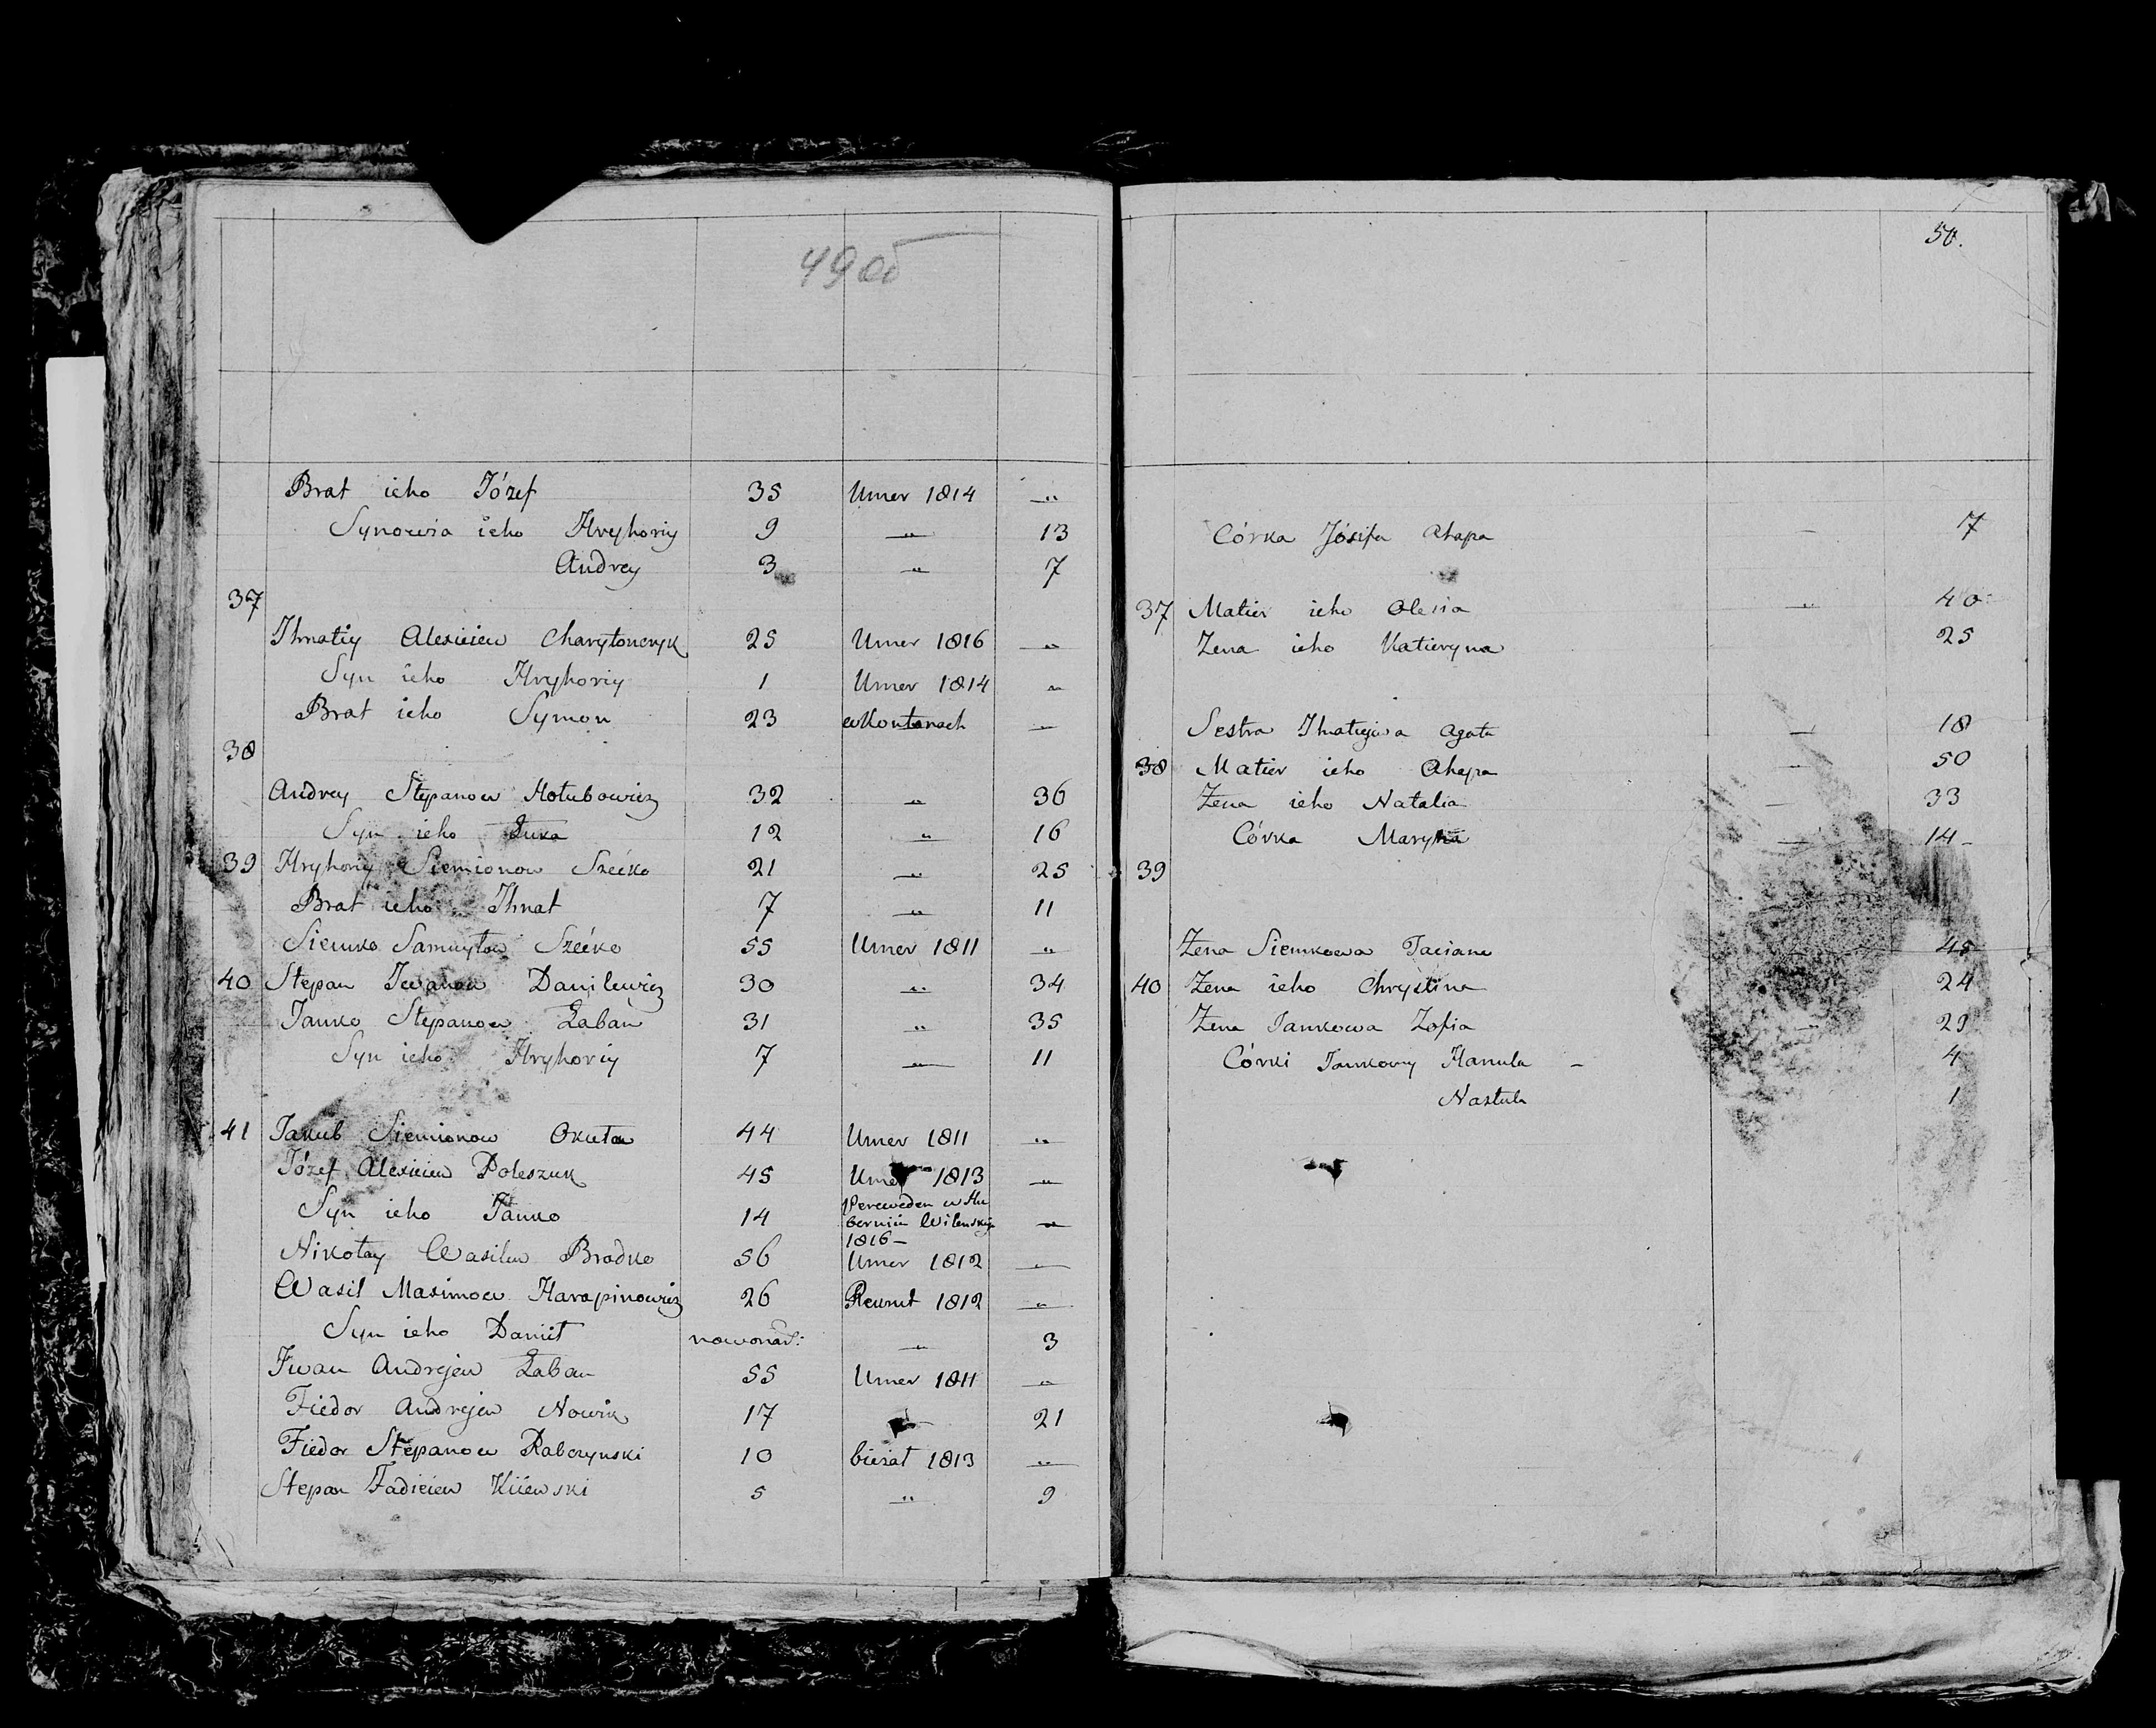 49 об
Brat ieho Józef 35 Umer 1814 — „
Synowia ieho Hryhoriy 9 — „ 13
Andrey 3 — „ 7
37
Ihnatiy Alexieiew Charytonczyk 25 Umer 1816 — „
Syn ieho Hryhoriy 1 Umer 1814 „
Brat ieho Symon 23 —
38
Andrey Stepanow Hołubowicz 32 „ 36
Syn ieho Łuka 12 „ 16
39 Hryhoriy Siemionow Szećko 21 „ 25
Brat ieho Ihnat 7 „ 11
Siemko Samuyłow Szećko 55 Umer 1811 „
40 Stepan Iwanow Danilewicz 30 „ 34
Janko Stepanow Łaban 31 „ 35
Syn ieho Hryhoriy 7 „ 11
41 Jakub Siemionow Okuła 44 Umer 1811 „
Józef Alexieiew Poleszuk 45 Umer 1813 „
Syn ieho Janko 14 Pereweden w Hu
bernii Wilenskiju „
1816 —
Nikołay Wasilew Bradko 56 Umer 1812 „
Wasil Maximow Harapinowicz 26 Rekrut 1812 „
Syn ieho Daniił nowonar: „ 3
Iwan Andrejew Łaban 55 Umer 1811 „
Fiedor Andrejew Nowik 17 21
Fiedor Stepanow Rabczynski 10 bieżał 1813 „
Stepan Fadieiew Kiiewski 5 „ 9
50.
Córka Jósifa Ahapa — 7
37 Matier ieho Olesia „ 40
Żena ieho Katieryna 25
Sestra Ihnatiejewa Agata — 18
38 Matier ieho Ahapa „ 50
Żena ieho Natalia — 33
Córka Maryna — 14 –
39
Żena Siemkowa Taciana 45
40 Żena ieho Chrystina 24
Żena Jankowa Zofia „ 29
Córki Jankowy Hanula – 4
Nastula 1